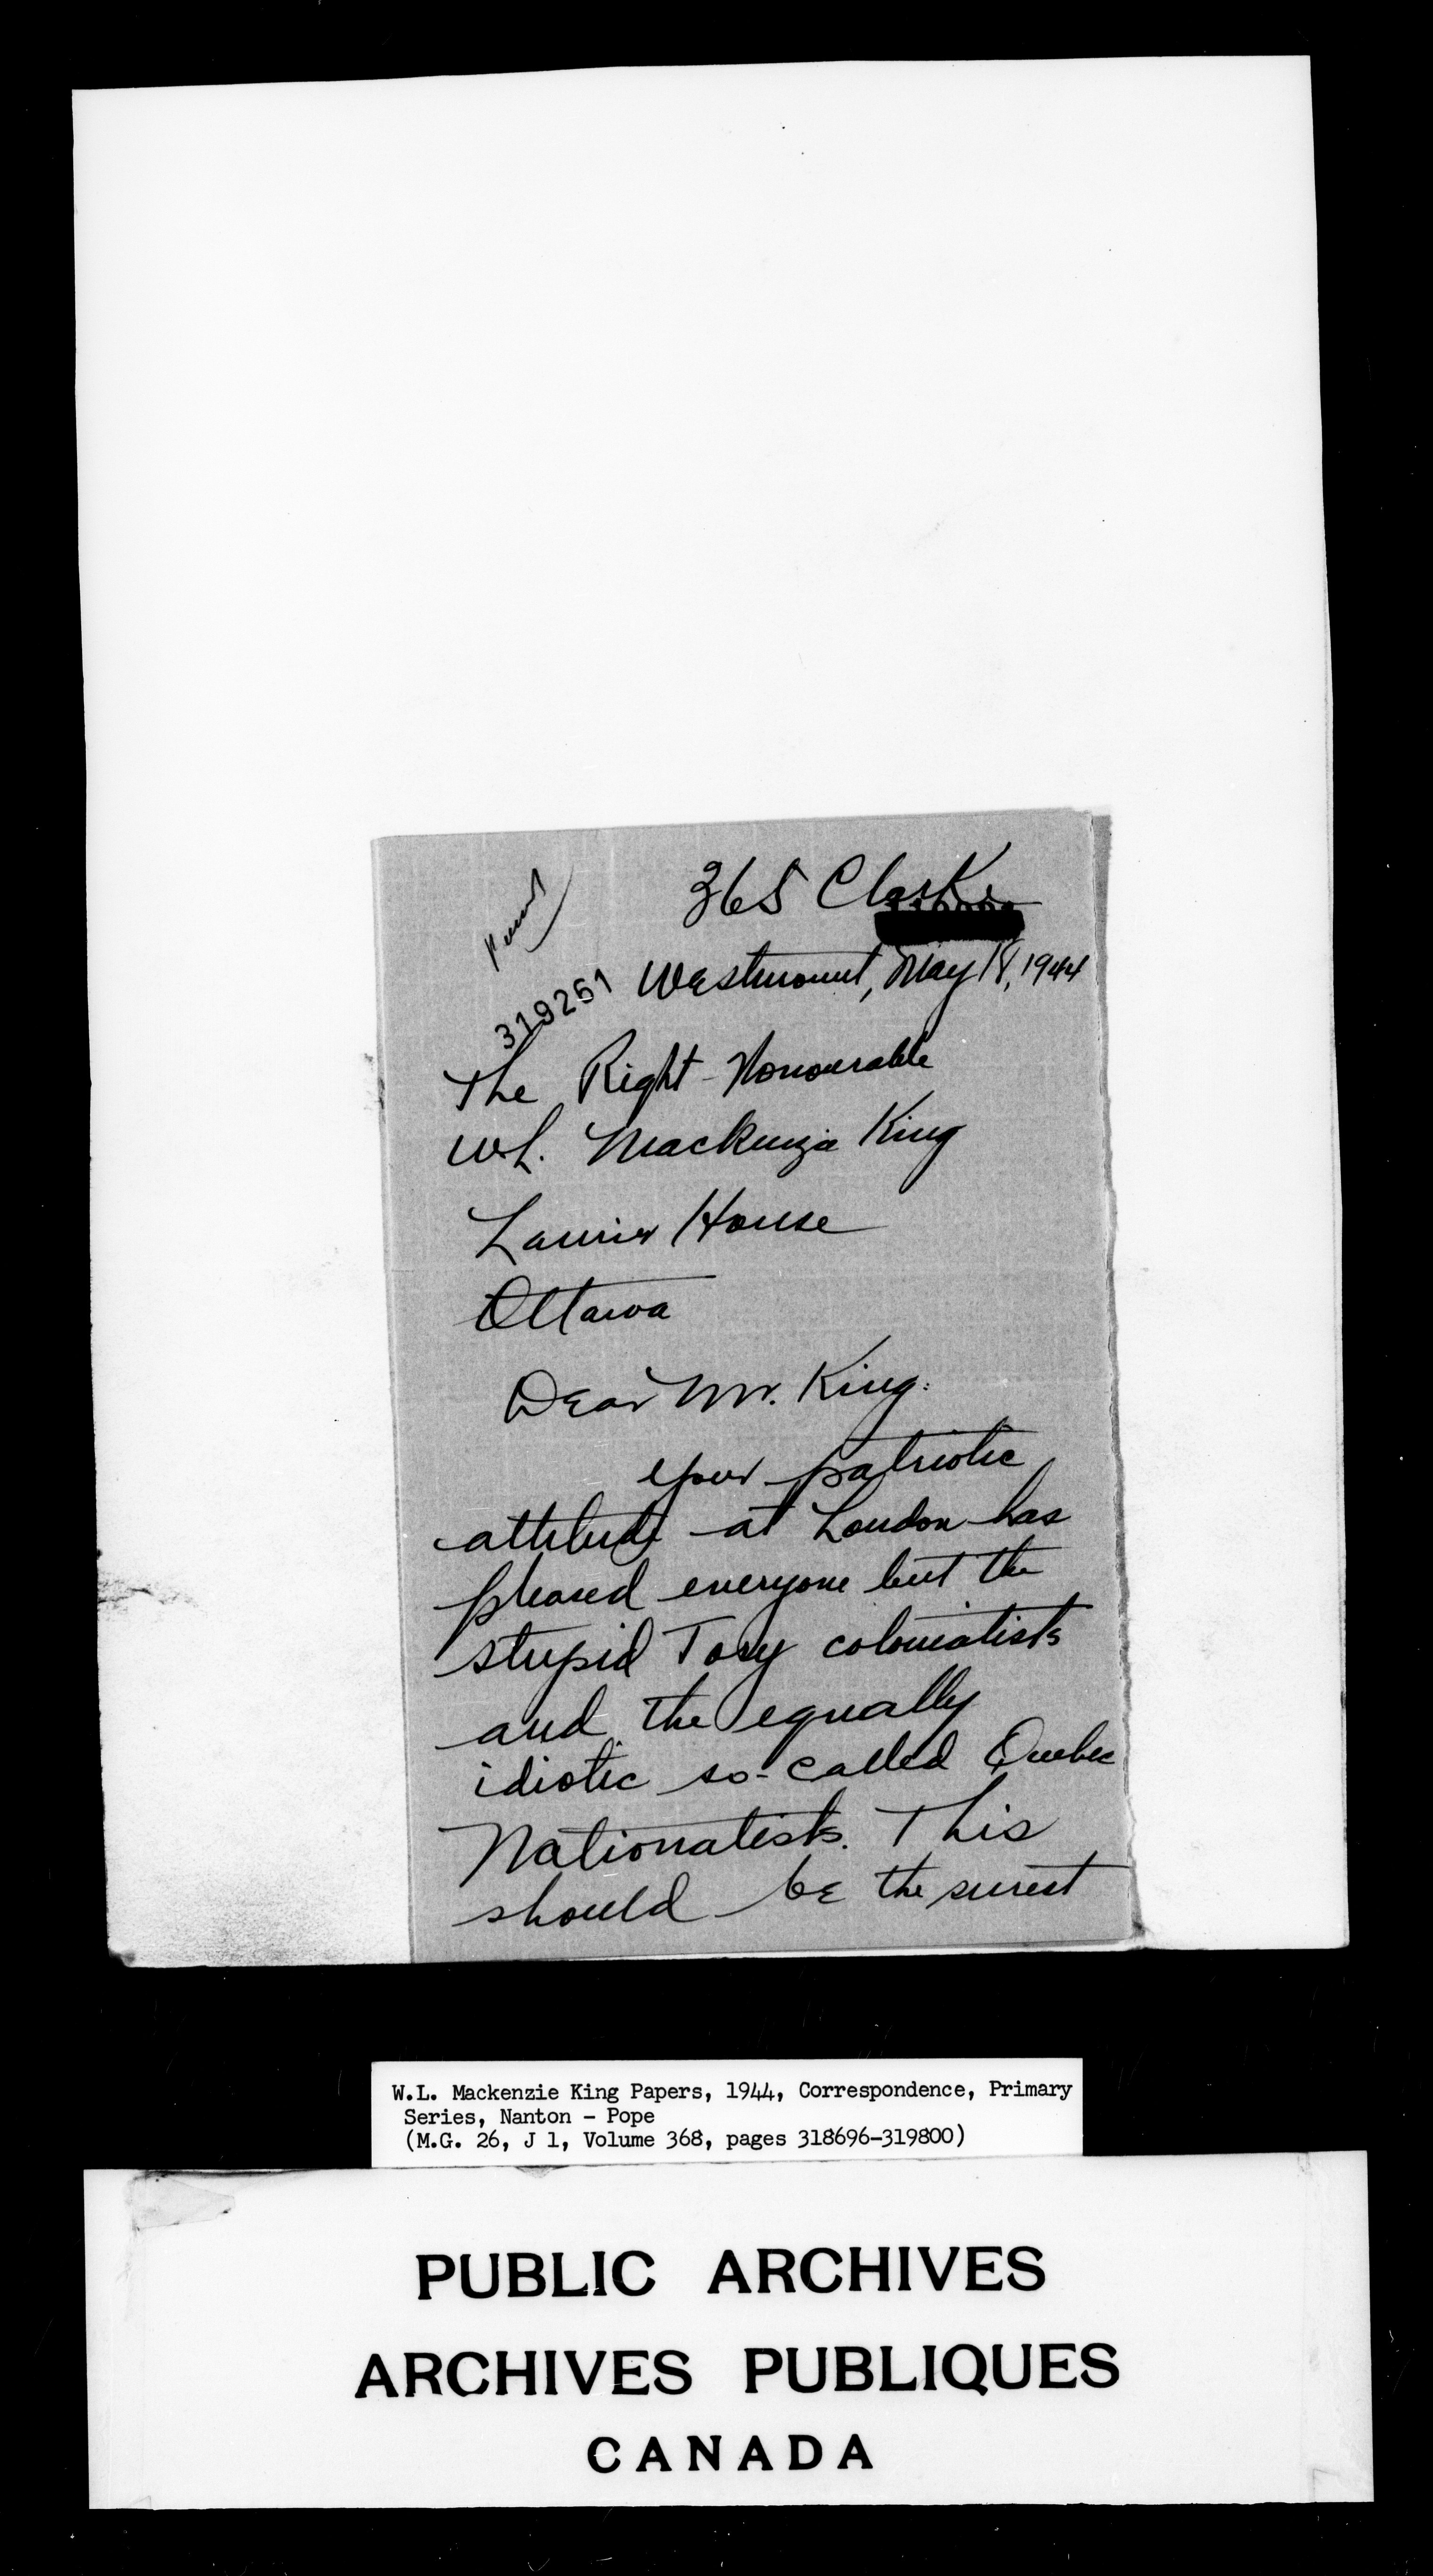 365 Clarke
Westmount, May 18, 1944
319261
The Right Honourable
W.L. Mackenzie King
Laurier House
Ottawa
Dear Mr. King:
Your patriotic
attitude at London has
pleased everyone but the
stupid Tory colonialists
and the equally
idiotic so-called Quebec
Nationalists. This
should be the surest
W.L. Mackenzie King Papers, 1944, Correspondence, Primary
Series, Nanton - Pope
(M.G. 26, J 1, Volume 368, pages 318696-319800)
PUBLIC ARCHIVES
ARCHIVES PUBLIQUES
CANADA